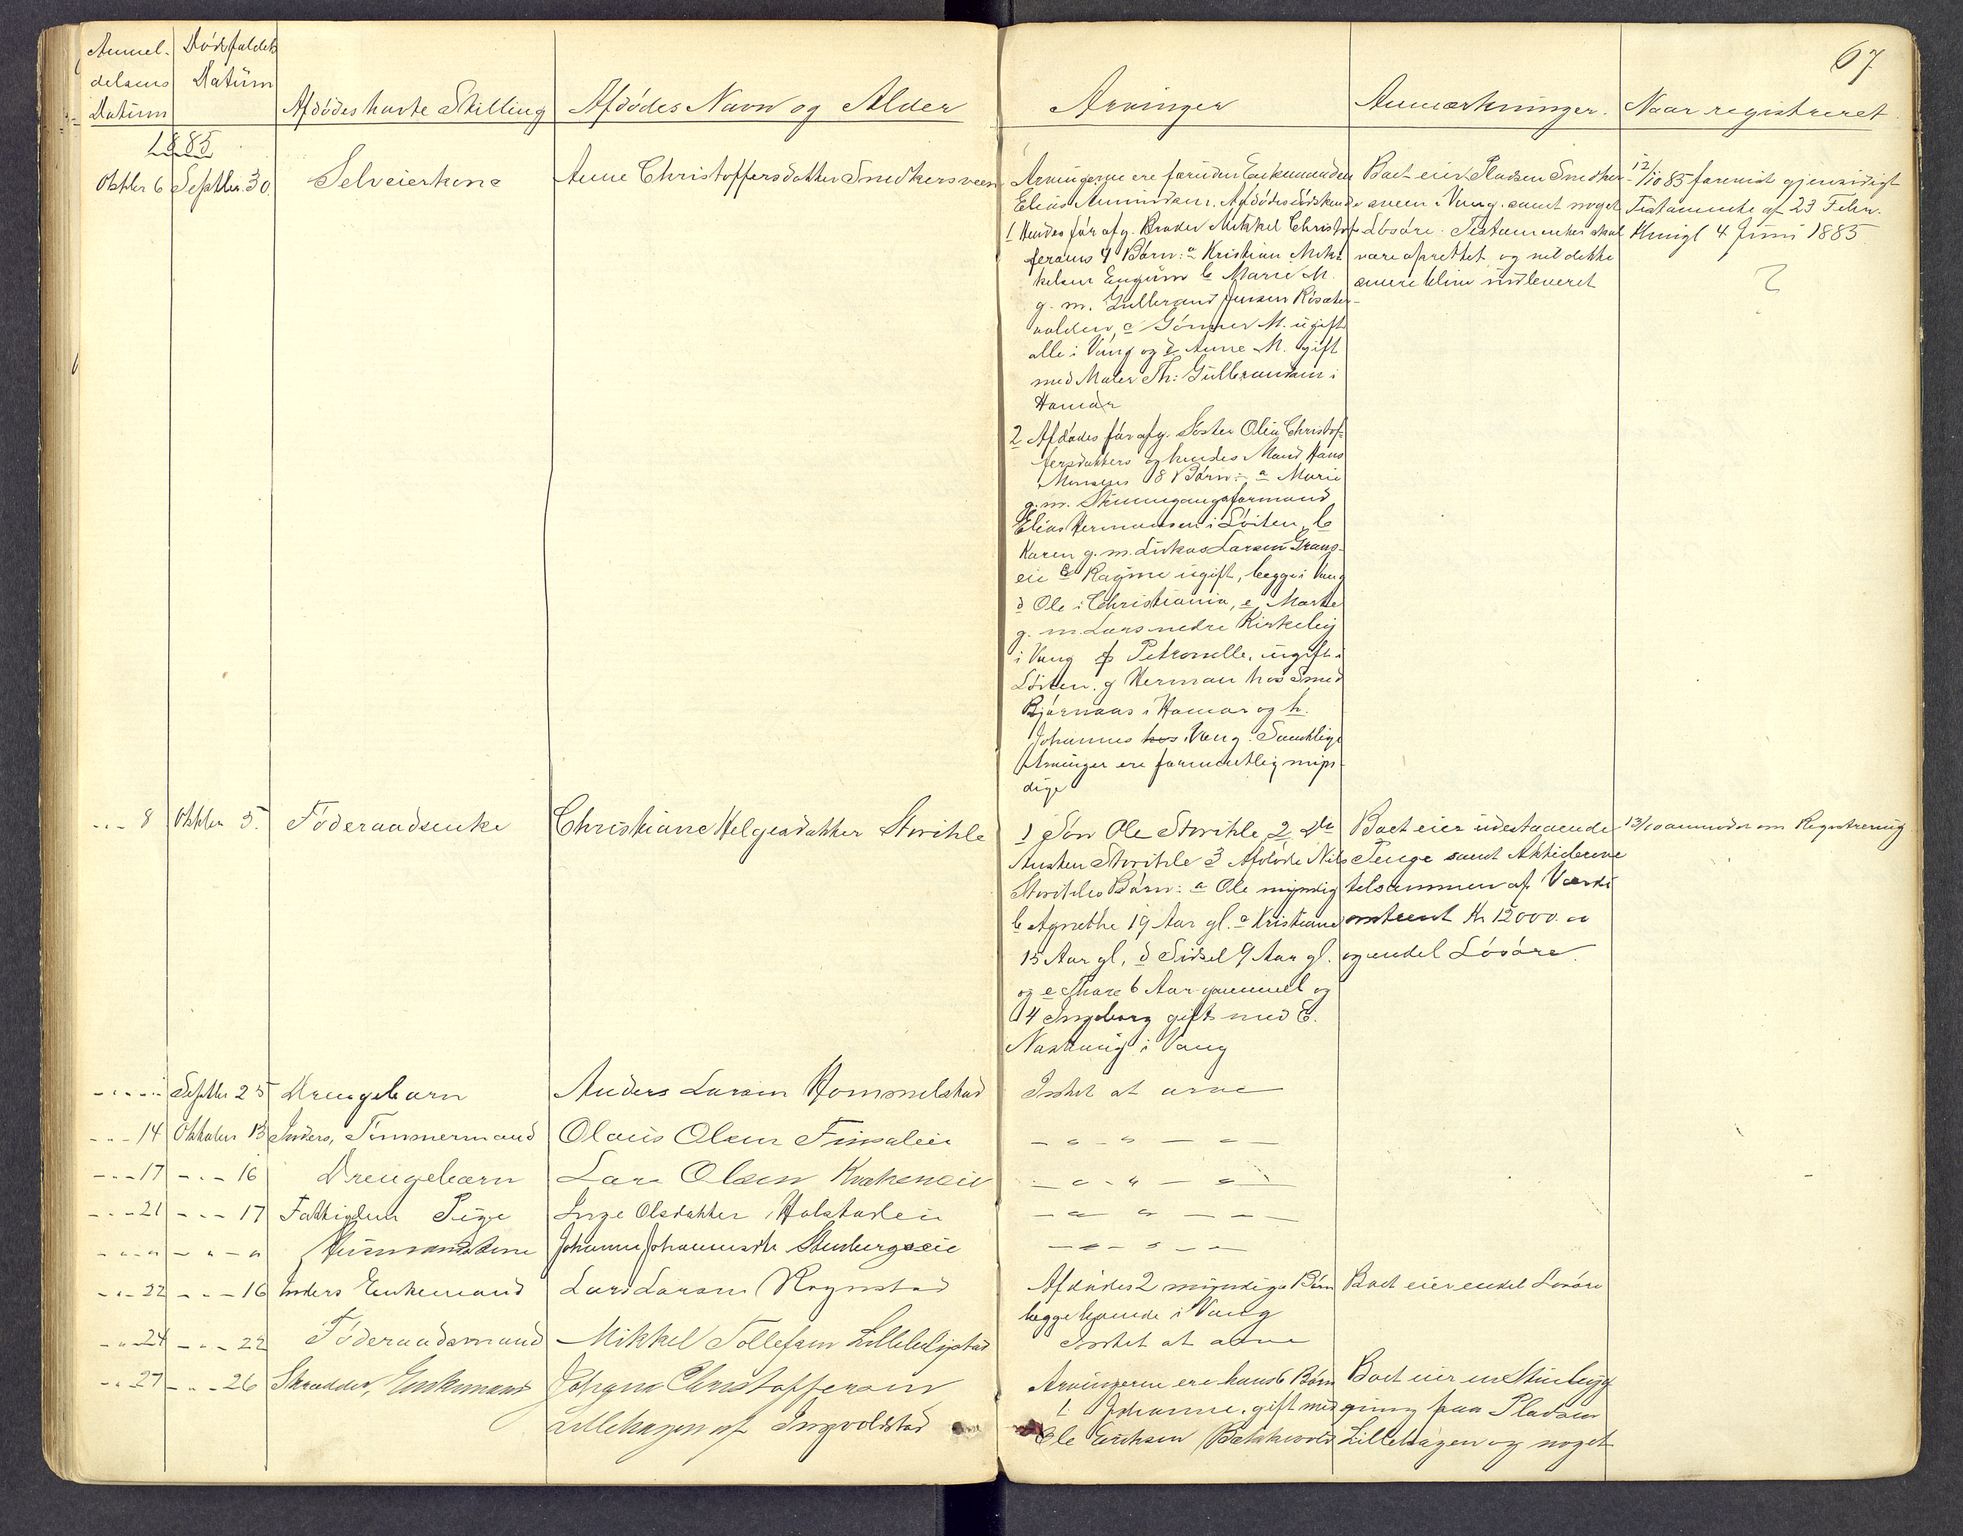 67
Anmel- Dødsfaldets
delsens Datum
Datum Afdødes havte Stilling Afdødes Navn og Alder Arvinger Anmærkninger. Naar registreret
1885
Oktbr 6 Septbr. 30. Selveierkone Anne Christoffersdatter Snedkersveen
Arvingerne ere foruden Enkemanden
Elias Amundsen. Afdødes Sødskende
1 Hendes før afg. Broder Mikkel Christof-
fersens 4 Børn: a Kristian Mik-
kelsen Engum b Marie M.
g. m. Gulbrand Jensen Rosæter-
volden, c Gunner M. ugift
alle i Vang og d Anne M. gift
med Maler Th: Gulbrandsen i
Hamar
2 Afdødes før afg. Søster Olia Christof-
fersdatters og hendes Mand Hans
8 Børn: a Marie
g. m. Stenngangsformand
Elias Hermansen i Løiten, b
Karen g. m. Lukas Larsen Grans-
eie c Ragne ugift, begge i Vang
d Ole i Christiania, e Marthe
g. m. Lars nedre Kirkeby
i Vang f Petronelle, ugift i
Løiten. g Herman hos Smed
Bjørnaas i Hamar og h.
Johannes hos i Vang. Samtlige
Arvinger ere formentlig myn-
dige
Boet eier Pladsen Snedker-
sveen i Vang samt noget
Løsøre. Testamenter skal
være oprettet og vil dette
senere blive indleveret
12/10 85 forevist gjensidigt
Testamente af 23 Febr.
Kongl 4 Juni 1885
?
- - - 8 Oktbr 5. Føderaadsenke Christiane Helgesdatter Storihle
1 Søn Ole Storihle 2 Do
Austen Storihle 3 Afdøde Nils
Storihles Børn: a Ole myndig
b Agnethe 19 Aar gl. c Kristiane
15 Aar gl, d Sidsel 9 Aar gl.
og e Thore 6 Aar gammel og
4 Ingeborg gift med E.
Nashaug i Vang
Boet eier udestaaende
Penge samt Aktiderne
tilsammen af Værdi
omtrent Kr 12000. 00
og endel Løsøre.
13/10 anmodet om Registrering
- " - " Septbr 25 Drengebarn Anders Larsen Hommelstad Intet at arve
- - - 14 Oktober 13 Inders, Tømmermand Olaus Olsen Finsaleie — " - " — " —
- - - 17 - - - 16 Drengebarn Lars Olsen Krakeneie — " - " — " —
- - - 21 - - - 17 Fattiglem Pige Inge Olsdatter Holstadeie — " — " — —
- " - " - " - " Husmandskone Johanne Johannesdtr Stenbergseie — " — " — —
- - - 22 - - - 16 Inders Enkemand Lars Larsen Rognstad
Afdødes 2 myndige Børn
begge boende i Vang
Boet eier endel Løsøre
- - - 24 - - - 22 Føderaadsmand Mikkel Tollefsen Lillebligstad Intet at arve
- - - 27 - - - 26 Skrædder, Enkemand Johan Christoffersen
Lillehagen af Ingvoldstad
Arvingerne ere hans 6 Børn
1. Johanne. gift med
Ole Eriksen Bækkevold
Boet eier en Stuebyg-
gning paa Pladsen
Lillehagen og noget